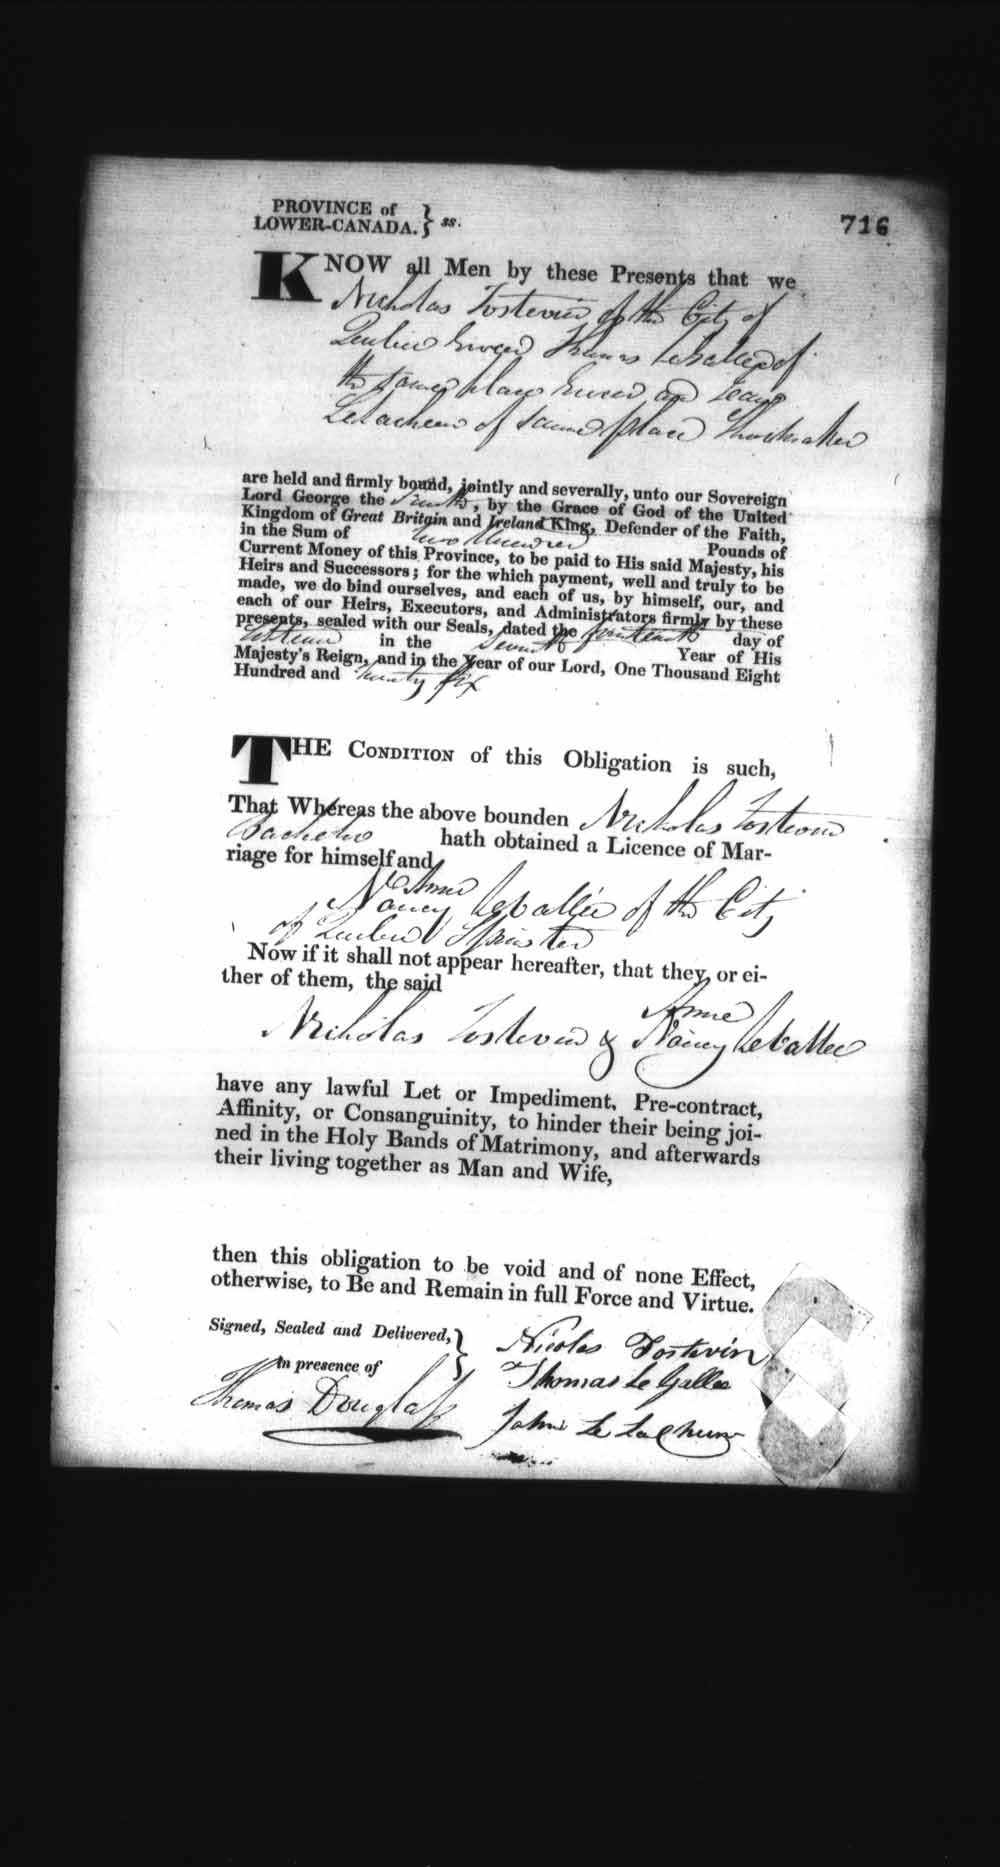 PROVINCE of
LOWER-CANADA. } ss.
716
KNOW all Men by these Presents that we
Nicholas Tostevin of the City of
Quebec Grocer Thomas LeGallee of
the same place Grocer and Jean
Lelacheur of same place Shoemaker
are held and firmly bound, jointly and severally, unto our Sovereign
Lord George the Fourth, by the Grace of God of the United
Kingdom of Great Britain and Ireland King, Defender of the Faith,
in the Sum of Two Hundred Pounds of
Current Money of this Province, to be paid to His said Majesty, his
Heirs and Successors; for the which payment, well and truly to be
made, we do bind ourselves, and each of us, by himself, our, and
each of our Heirs, Executors, and Administrators firmly by these
presents, sealed with our Seals, dated the day of
in the Seventh Year of His
Majesty's Reign, and in the Year of our Lord, One Thousand Eight
Hundred and twenty six
THE CONDITION of this Obligation is such,
That Whereas the above bounden Nicholas Tostevin
Bachelor hath obtained a Licence of Mar-
riage for himself and
Anne
Nancy LeVallée of the City
of Quebec Spinster
Now if it shall not appear hereafter, that they, or ei-
ther of them, the said
Anne
Nicholas Tostevin & Nancy LeVallee
have any lawful Let or Impediment, Pre-contract,
Affinity, or Consanguinity, to hinder their being joi-
ned in the Holy Bands of Matrimony, and afterwards
their living together as Man and Wife,
then this obligation to be void and of none Effect,
otherwise, to Be and Remain in full Force and Virtue.
Signed, Sealed and Delivered, }
in presence of
Nicolas Tostevin
Thomas Le Gallee
Thomas Douglass
John Le Lacheur